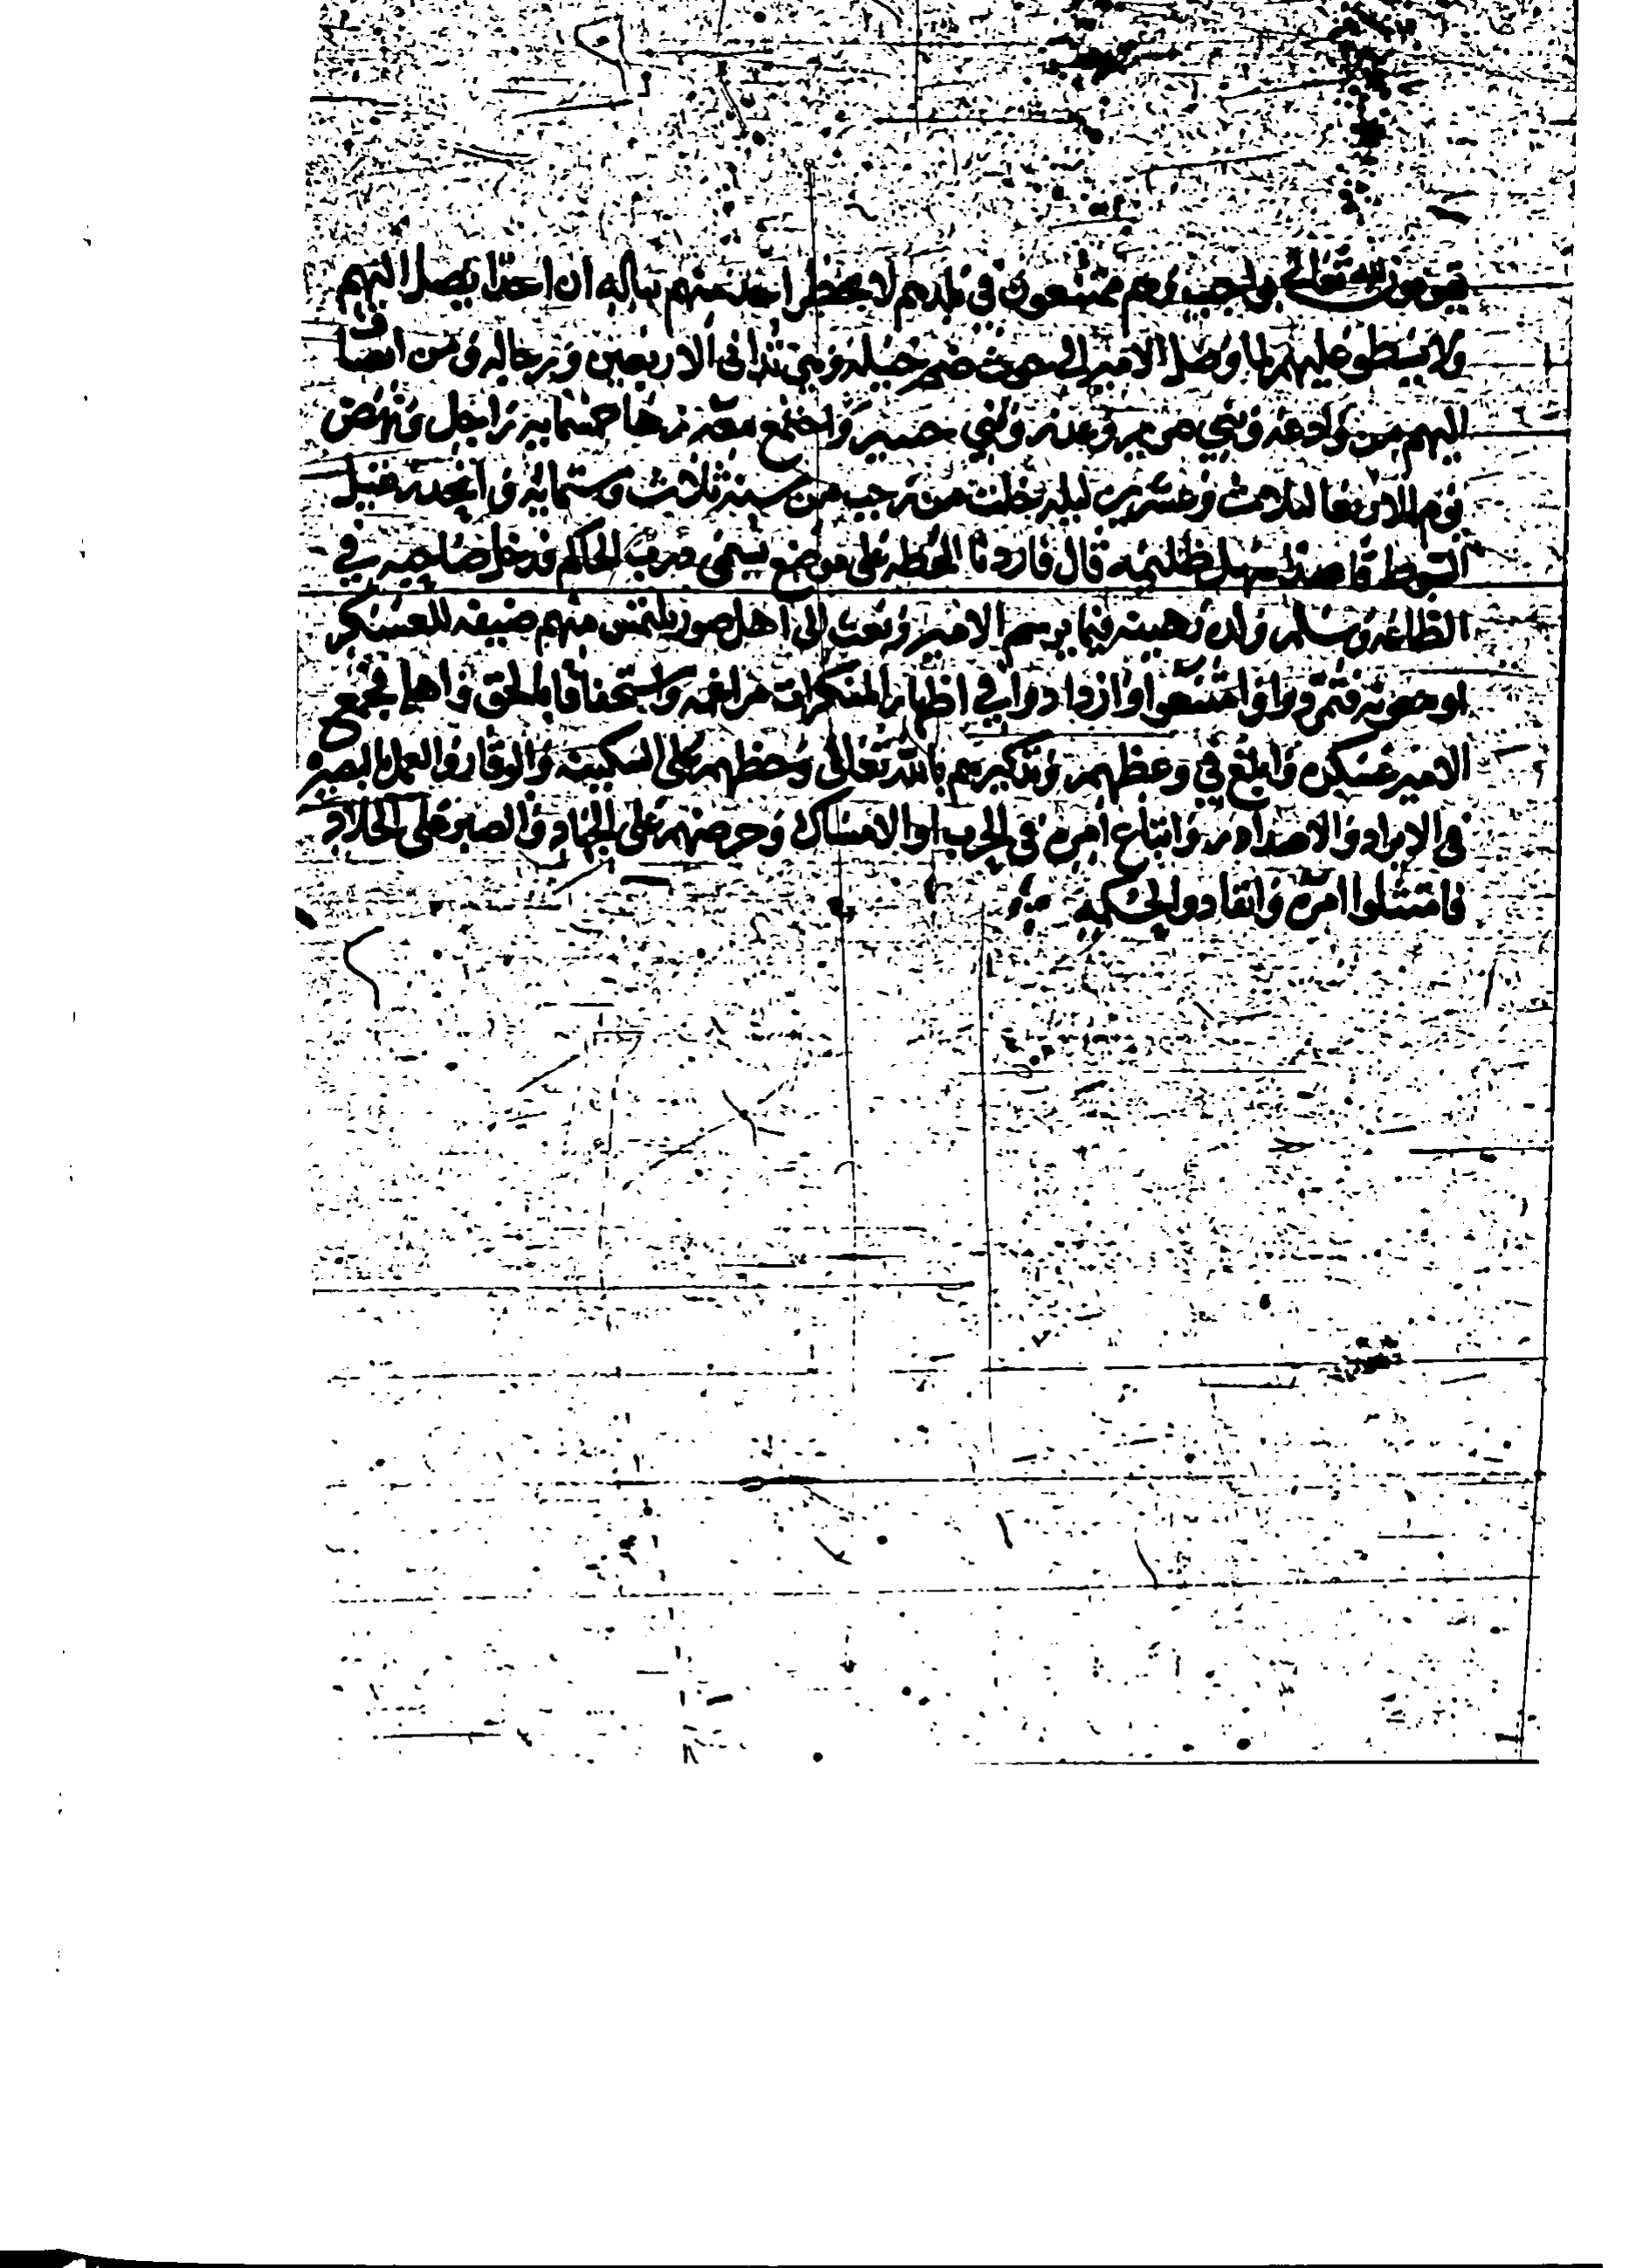 يقومون لله تعالى بواجب وهم ممتنعون في بلدهم لا يخطر احد منهم بباله ان احدا يصل اليهم
ولا يسطو عليهم فلما وصل الامير الى حوث ضم خيله وهي تداني الاربعين ورجاله ومن انضاف
اليهم من وادعه وبني صريم وعذر وبني حسير واجتمع معه زها خمسمايه راجل ونهض
يوم الاربعا لثلاث وعشرين ليله خلت من رجب من سنه ثلاث وستمائه وانحدر قبيل
الشوط قاصدا سهل ظليمه قال فاردنا المحطه على موضع يسمى درب الحاكم قد دخل صاحبه في
الطاعه وسلم ولده رهينه فيما يرسم الامير وبعث الى اهل صور يلتمس منهم ضيفه للعسكر
او معونه فتمردوا وامتنعوا وازدادوا في اظهار المنكرات مراغمه واستخفافا بالحق واهله فجمع
الامير عسكره وابلغ في وعظهم وتذكيرهم بالله تعالى وحظهم على السكينه والوقار والعمل بالبصيره
في الايراد والاصدار واتباع امره في الحرب او الامساك وحرضهم على الجهاد والصبر على الجلاد
فامتثلوا امره وانقادوا لحكمه